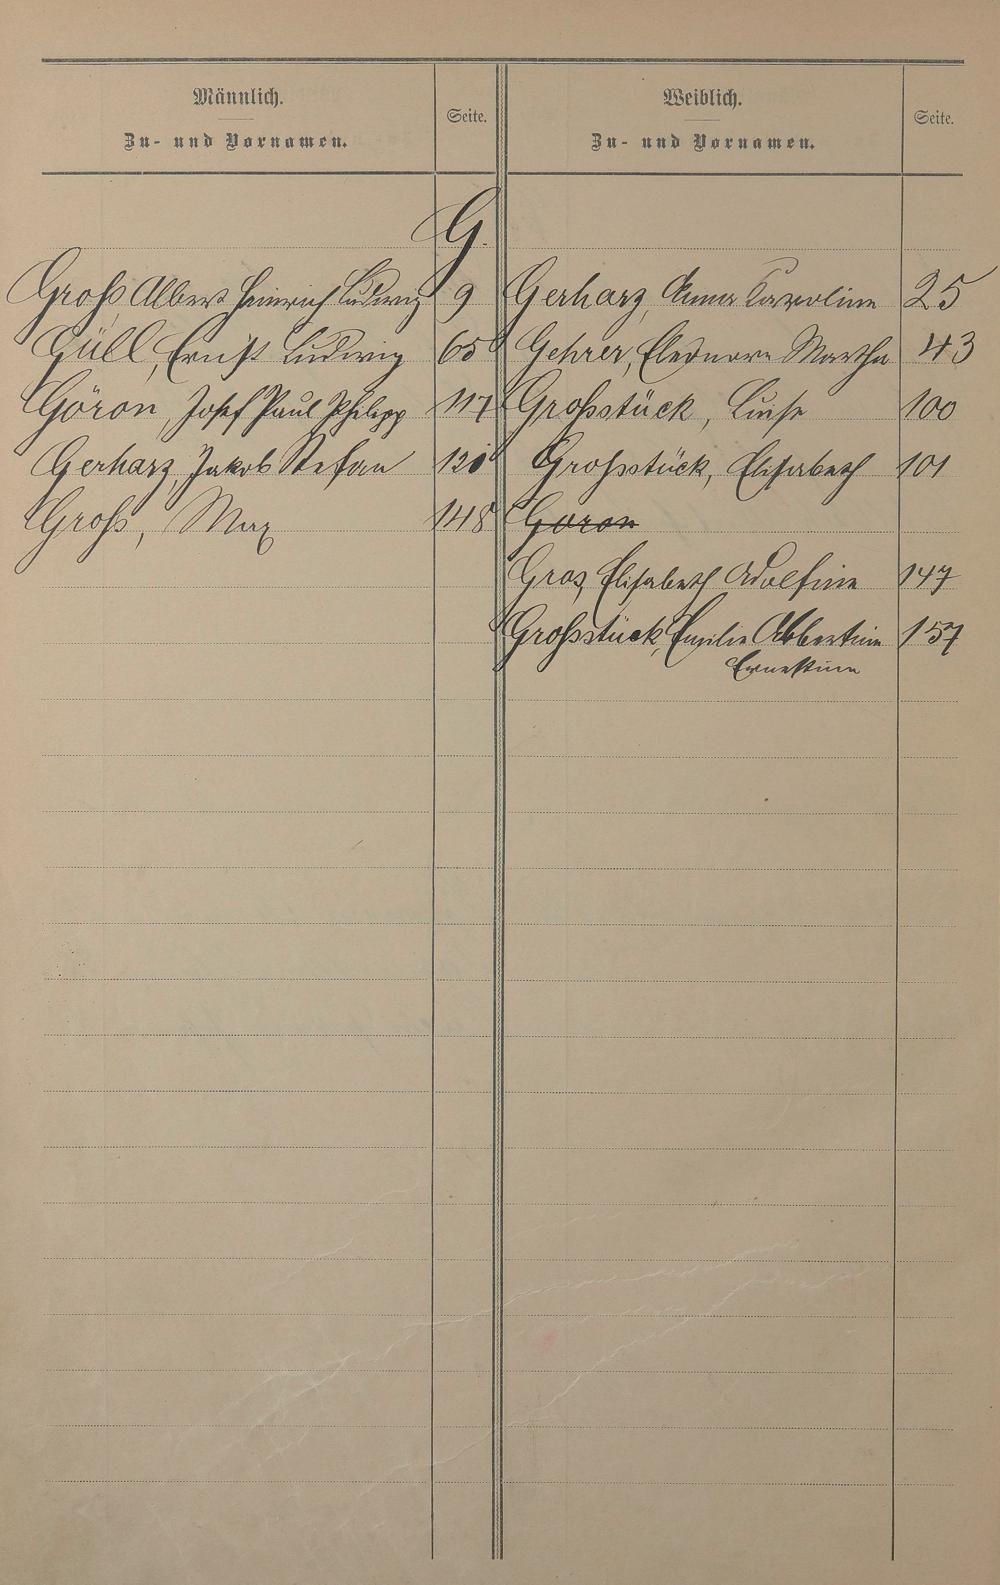 Männlich.
Zu- und Vornamen.
Seite.
Weiblich.
Zu- und Vornamen.
Seite.
G.
Groß, Albert Heinrich Ludwig 9
Güll, Ernst Ludwig 65
Göron, Josef Paul Philipp 117
Gerharz, Jakob Stefan 120
Groß, Max 148
Gerharz, Anna Karoline 25
Gehrer, Eleonore Martha 43
Großstück, Luise 100
Großstück, Elisabeth 101
Goron
Gros, Elisabeth Adolfine 147
Großstück, Emilie Albertine 157
Ernestine